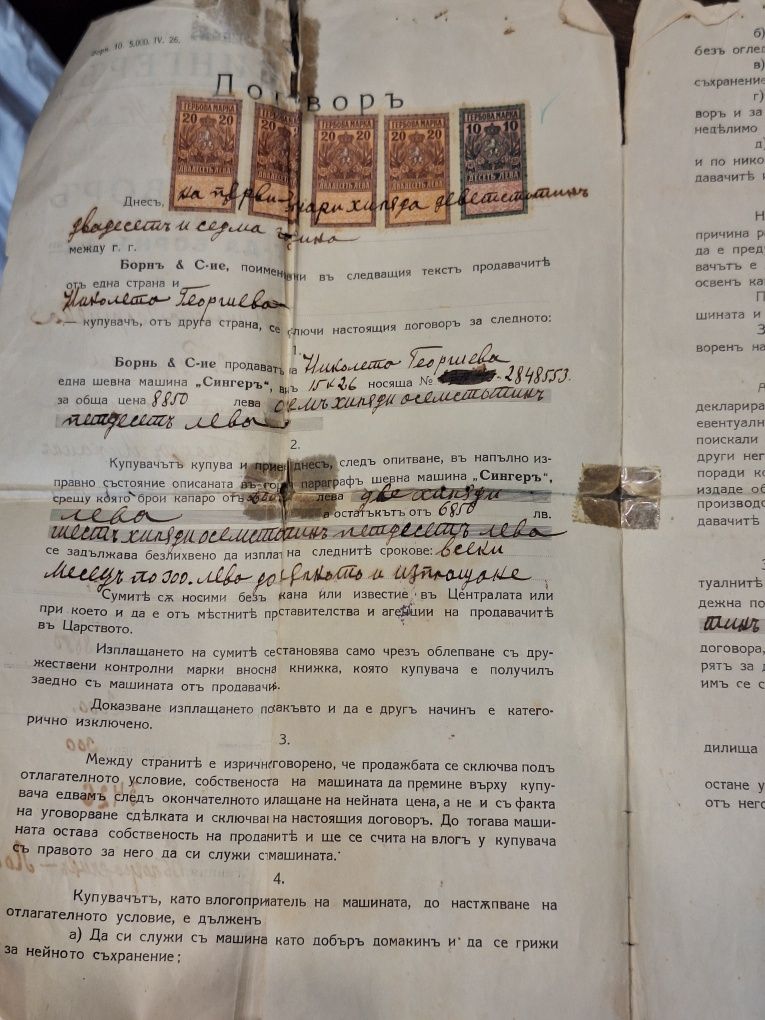 Форм. 10. 5.000. IV. 26.
Договоръ
ГЕРБОВА МАРКА
20 20
ДВАДЕСЕТЬ ЛЕВА
ГЕРБОВА МАРКА
20 20
ГЕРБОВА МАРКА
20 20
ДВАДЕСЕТЬ ЛЕВА
ГЕРБОВА МАРКА
20 20
ДВАДЕСЕТЬ ЛЕВА
ГЕРБОВА МАРКА
10 10
ДЕСЕТЬ ЛЕВА
Днесъ, на първи хиляда деветстотинъ
двадесетъ и седма година
между г. г.
Борнъ & С-ие, поименувани въ следващия текстъ продавачитѣ
отъ една страна и
Николета Георгиева
— купувачъ, отъ друга страна, се сключи настоящия договоръ за следното:
1.
Борнъ & С-ие продаватъ на Николета Георгиева
една шевна машина „Сингеръ“, 15 К 26 носяща № 2848553.
за обща цена 8850 лева осемъ хиляди осемстотинъ
петдесетъ лева
2.
Купувачътъ купува и прие днесъ, следъ опитване, въ напълно из-
правно състояние описаната въ горния параграфъ шевна машина „Сингеръ“,
срещу която брои капаро отъ лева две хиляди
лева а остатъкътъ отъ 6850 лв.
шестъ хиляди осемстотинъ петдесетъ лева
се задължава безлихвено да изплати на следнитѣ срокове: всеки
месецъ по 300. лева до изплащане
Сумитѣ сѫ носими безъ покана или известие въ Централата или
при което и да е отъ мѣстнитѣ представителства и агенции на продавачитѣ
въ Царството.
Изплащането на сумитѣ се установява само чрезъ облепване съ дру-
жествени контролни марки вносна книжка, която купувача е получилъ
заедно съ машината отъ продавачи
Доказване изплащането по какъвто и да е другъ начинъ е катего-
рично изключено.
3.
Между странитѣ е изрично уговорено, че продажбата се сключва подъ
отлагателното условие, собствеността на машината да премине върху купу-
вача едвамъ следъ окончателното изплащане на нейната цена, а не и съ факта
на уговорване сделката и сключване на настоящия договоръ. До тогава маши-
ната остава собственость на продавачитѣ и ще се счита на влогъ у купувача
съ правото за него да си служи съ машината.
4.
Купувачътъ, като влогоприятель на машината, до настѫпване на
отлагателното условие, е длъженъ
а) Да си служи съ машина като добъръ домакинъ и да се грижи
за нейното съхранение;
б)
безъ огле
в)
съхранение
г)
воръ и за
недѣлимо
д)
и по нико
давачитѣ и
Н
причина р
да е пред
вачътъ е
освенъ ка
шината и
З
воренъ на
декларира
евентуалн
поискали
други нег
поради ко
издаде об
производс
давачитѣ
туалнитѣ
дежна по
тинъ
договора,
рятъ за д
имъ се с
дилища
остане у
отъ него